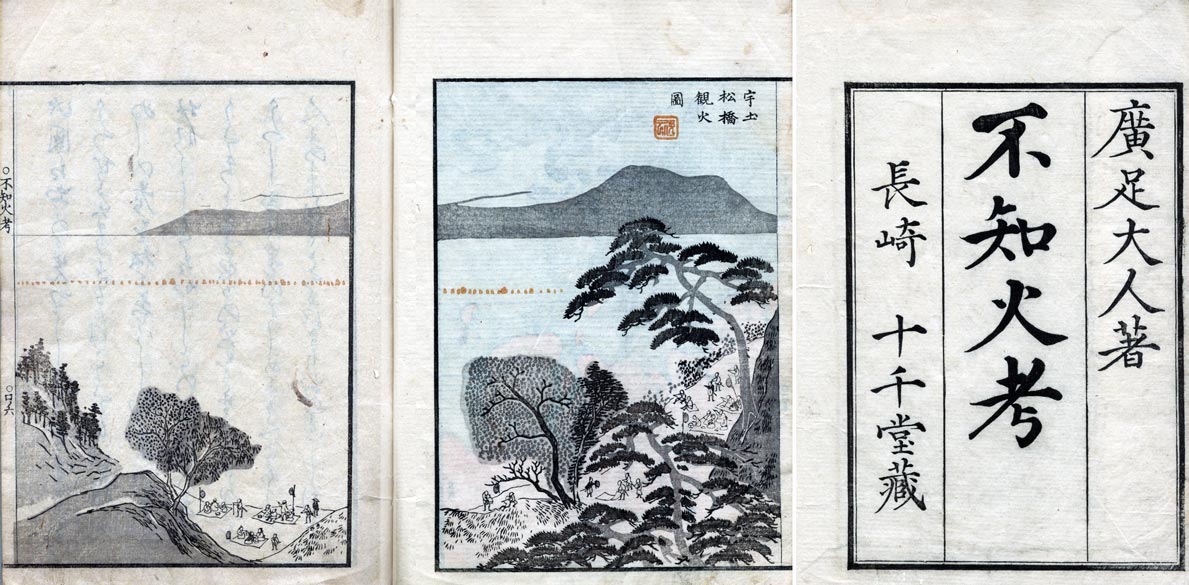 廣足大人著
不知火考
長崎 十千堂藏
宇土
松橋
観火
圖
○不知火考
○口ノ六